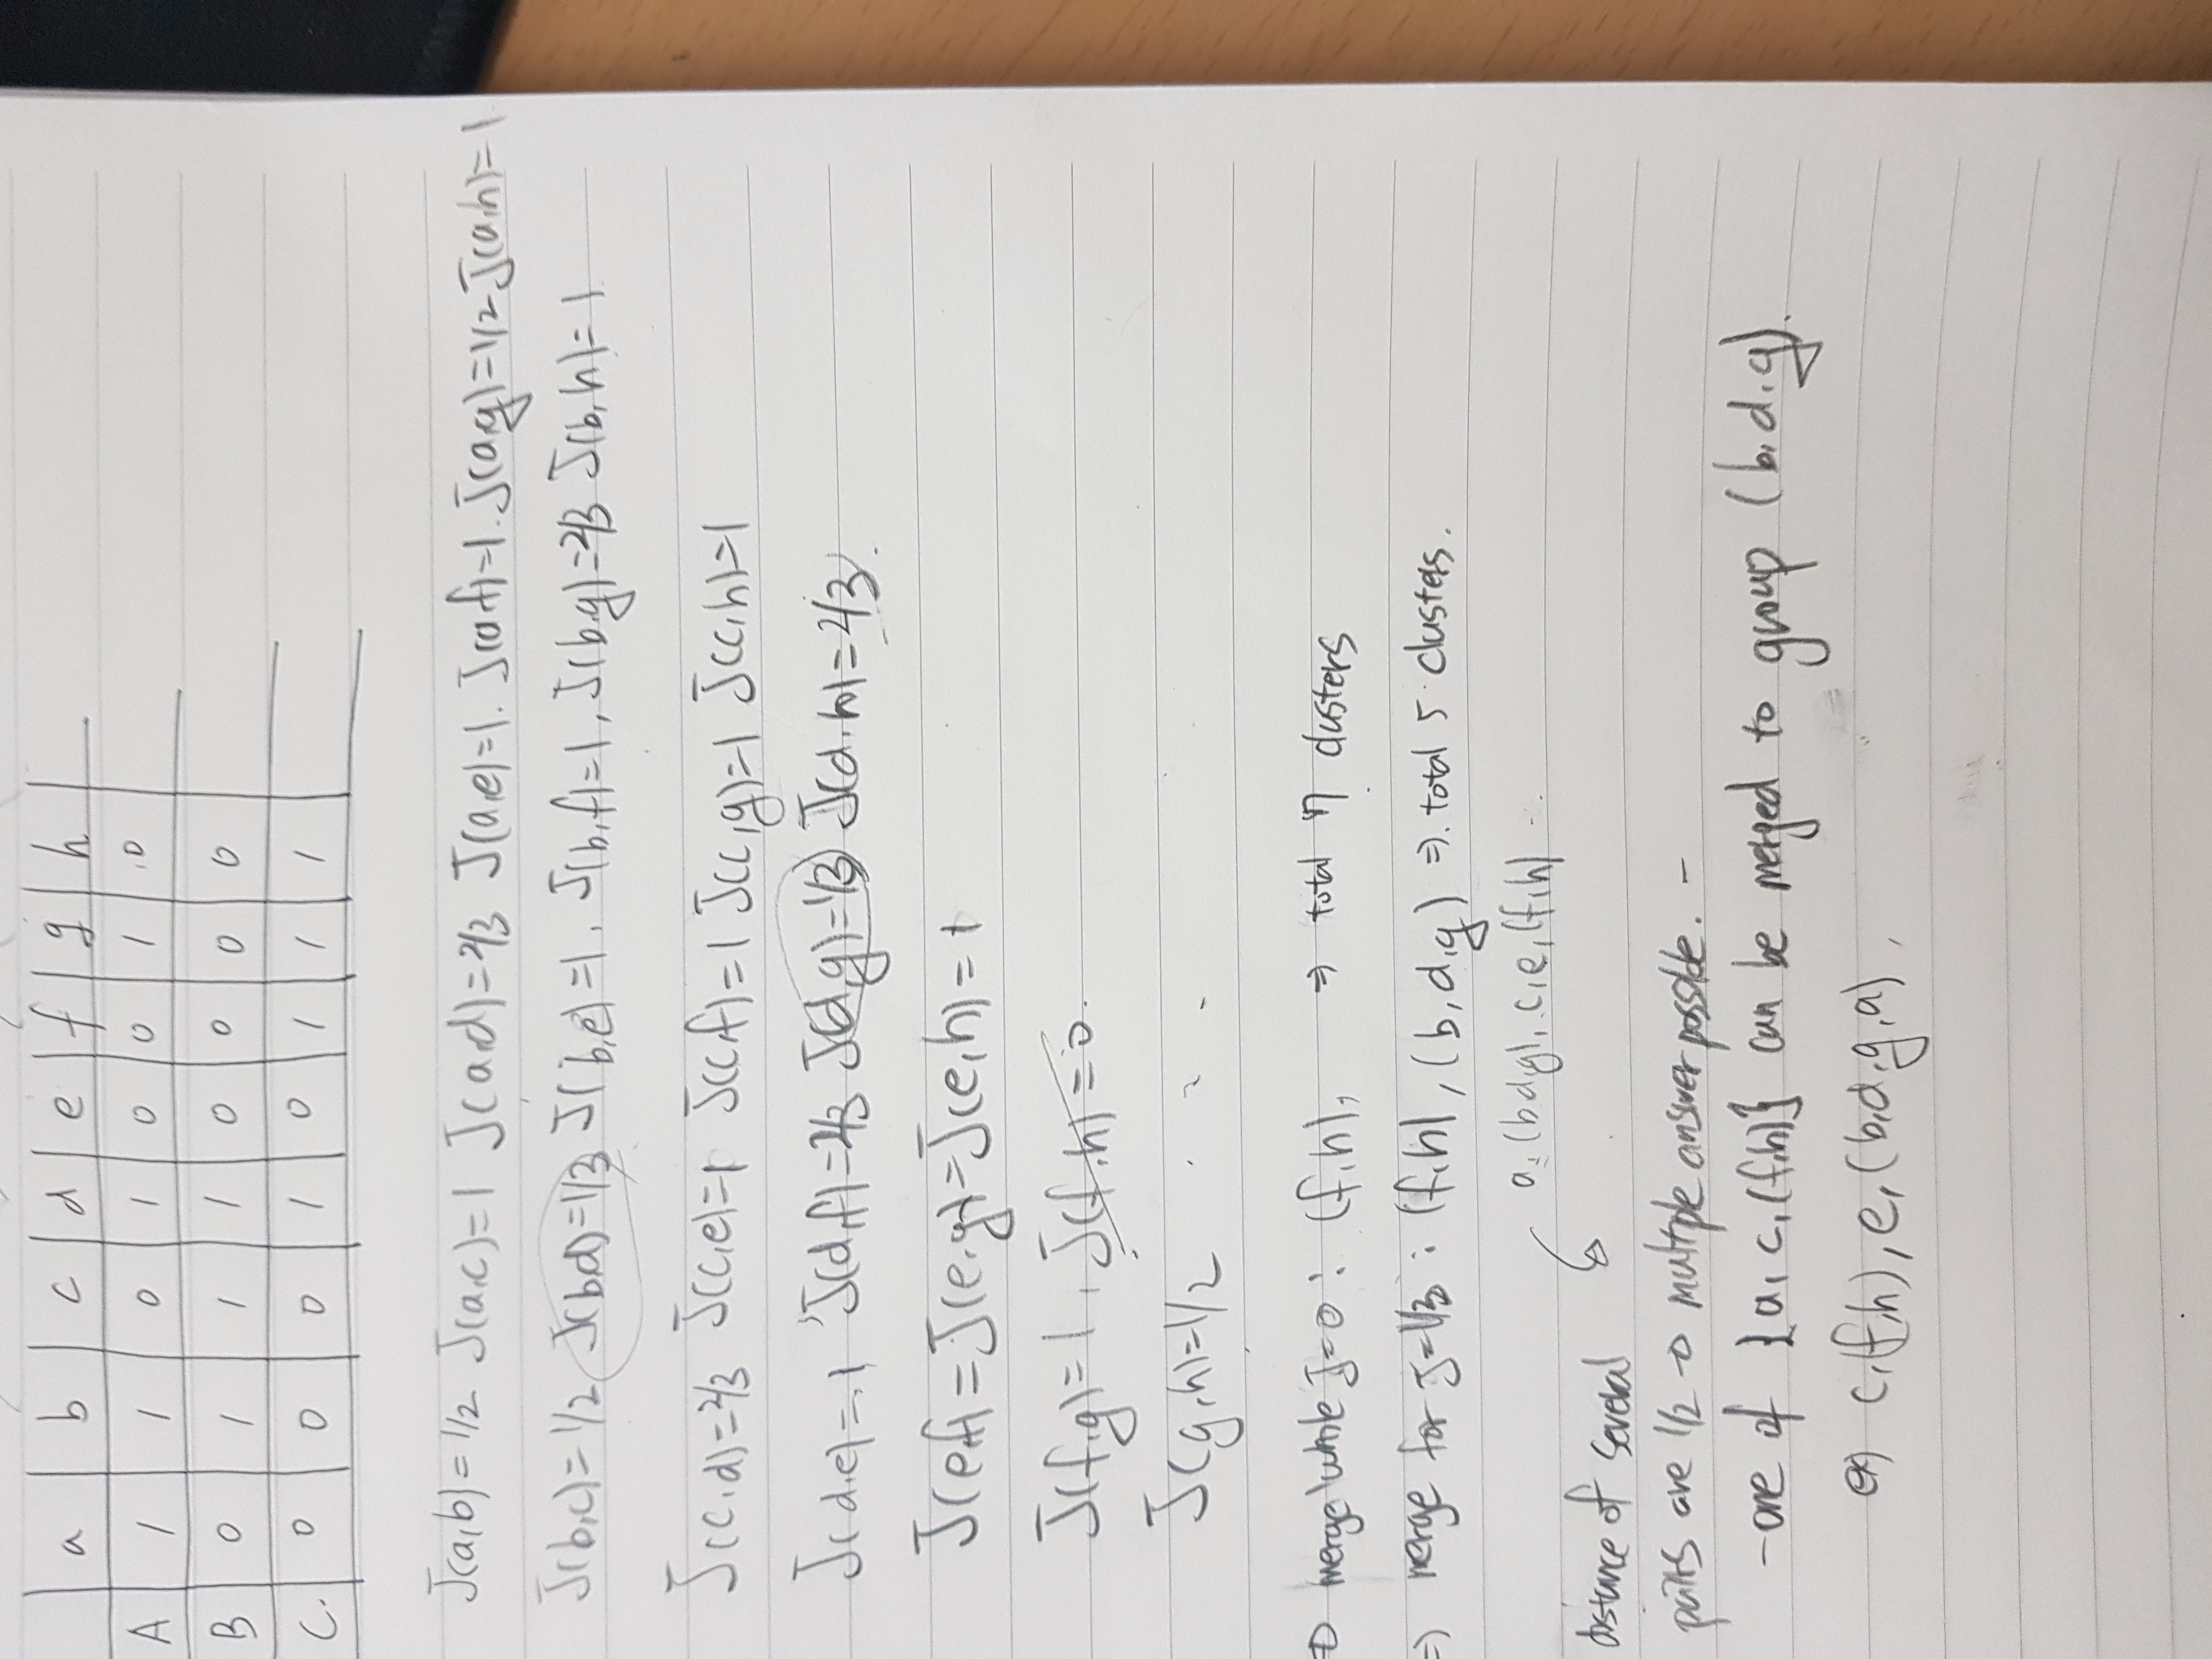 a b c d e f g h
A 1 1 0 1 0 0 1 0
B 0 1 1 1 0 0 0 0
C. 0 0 0 1 0 1 1 1
J(a,b)=1/2 J(a,c)=1 J(a,d)=2/3 J(a,e)=1. J(a,f)=1. J(a,g)=1/2 J(a,h)=1
J(b,c)=1/2 J(b,d)=1/3 J(b,e)=1. J(b,f)=1, J(b,g)=2/3 J(b,h)=1
J(c,d)=2/3 J(c,e)=1 J(c,f)=1 J(c,g)=1 J(c,h)=1
J(d,e)=1, J(d,f)=2/3 J(d,g)=1/3 J(d,h)=2/3.
J(e,f)=J(e,g)=J(e,h)=1
J(f,g)=1, J(f,h)=0.
J(g,h)=1/2
merge while J=0: (f,h), ⇒ total 7 clusters
⇒) merge for J=1/3: (f,h), (b,d,g) ⇒ total 5 clusters.
a, (b,d,g), c, e, (f,h)
distance of several
pairs are 1/2 → multiple answer possible. -
- one of {a, c, (f,h)} can be merged to group (b,d,g).
ex) c, (f,h), e, (b,d,g,a),